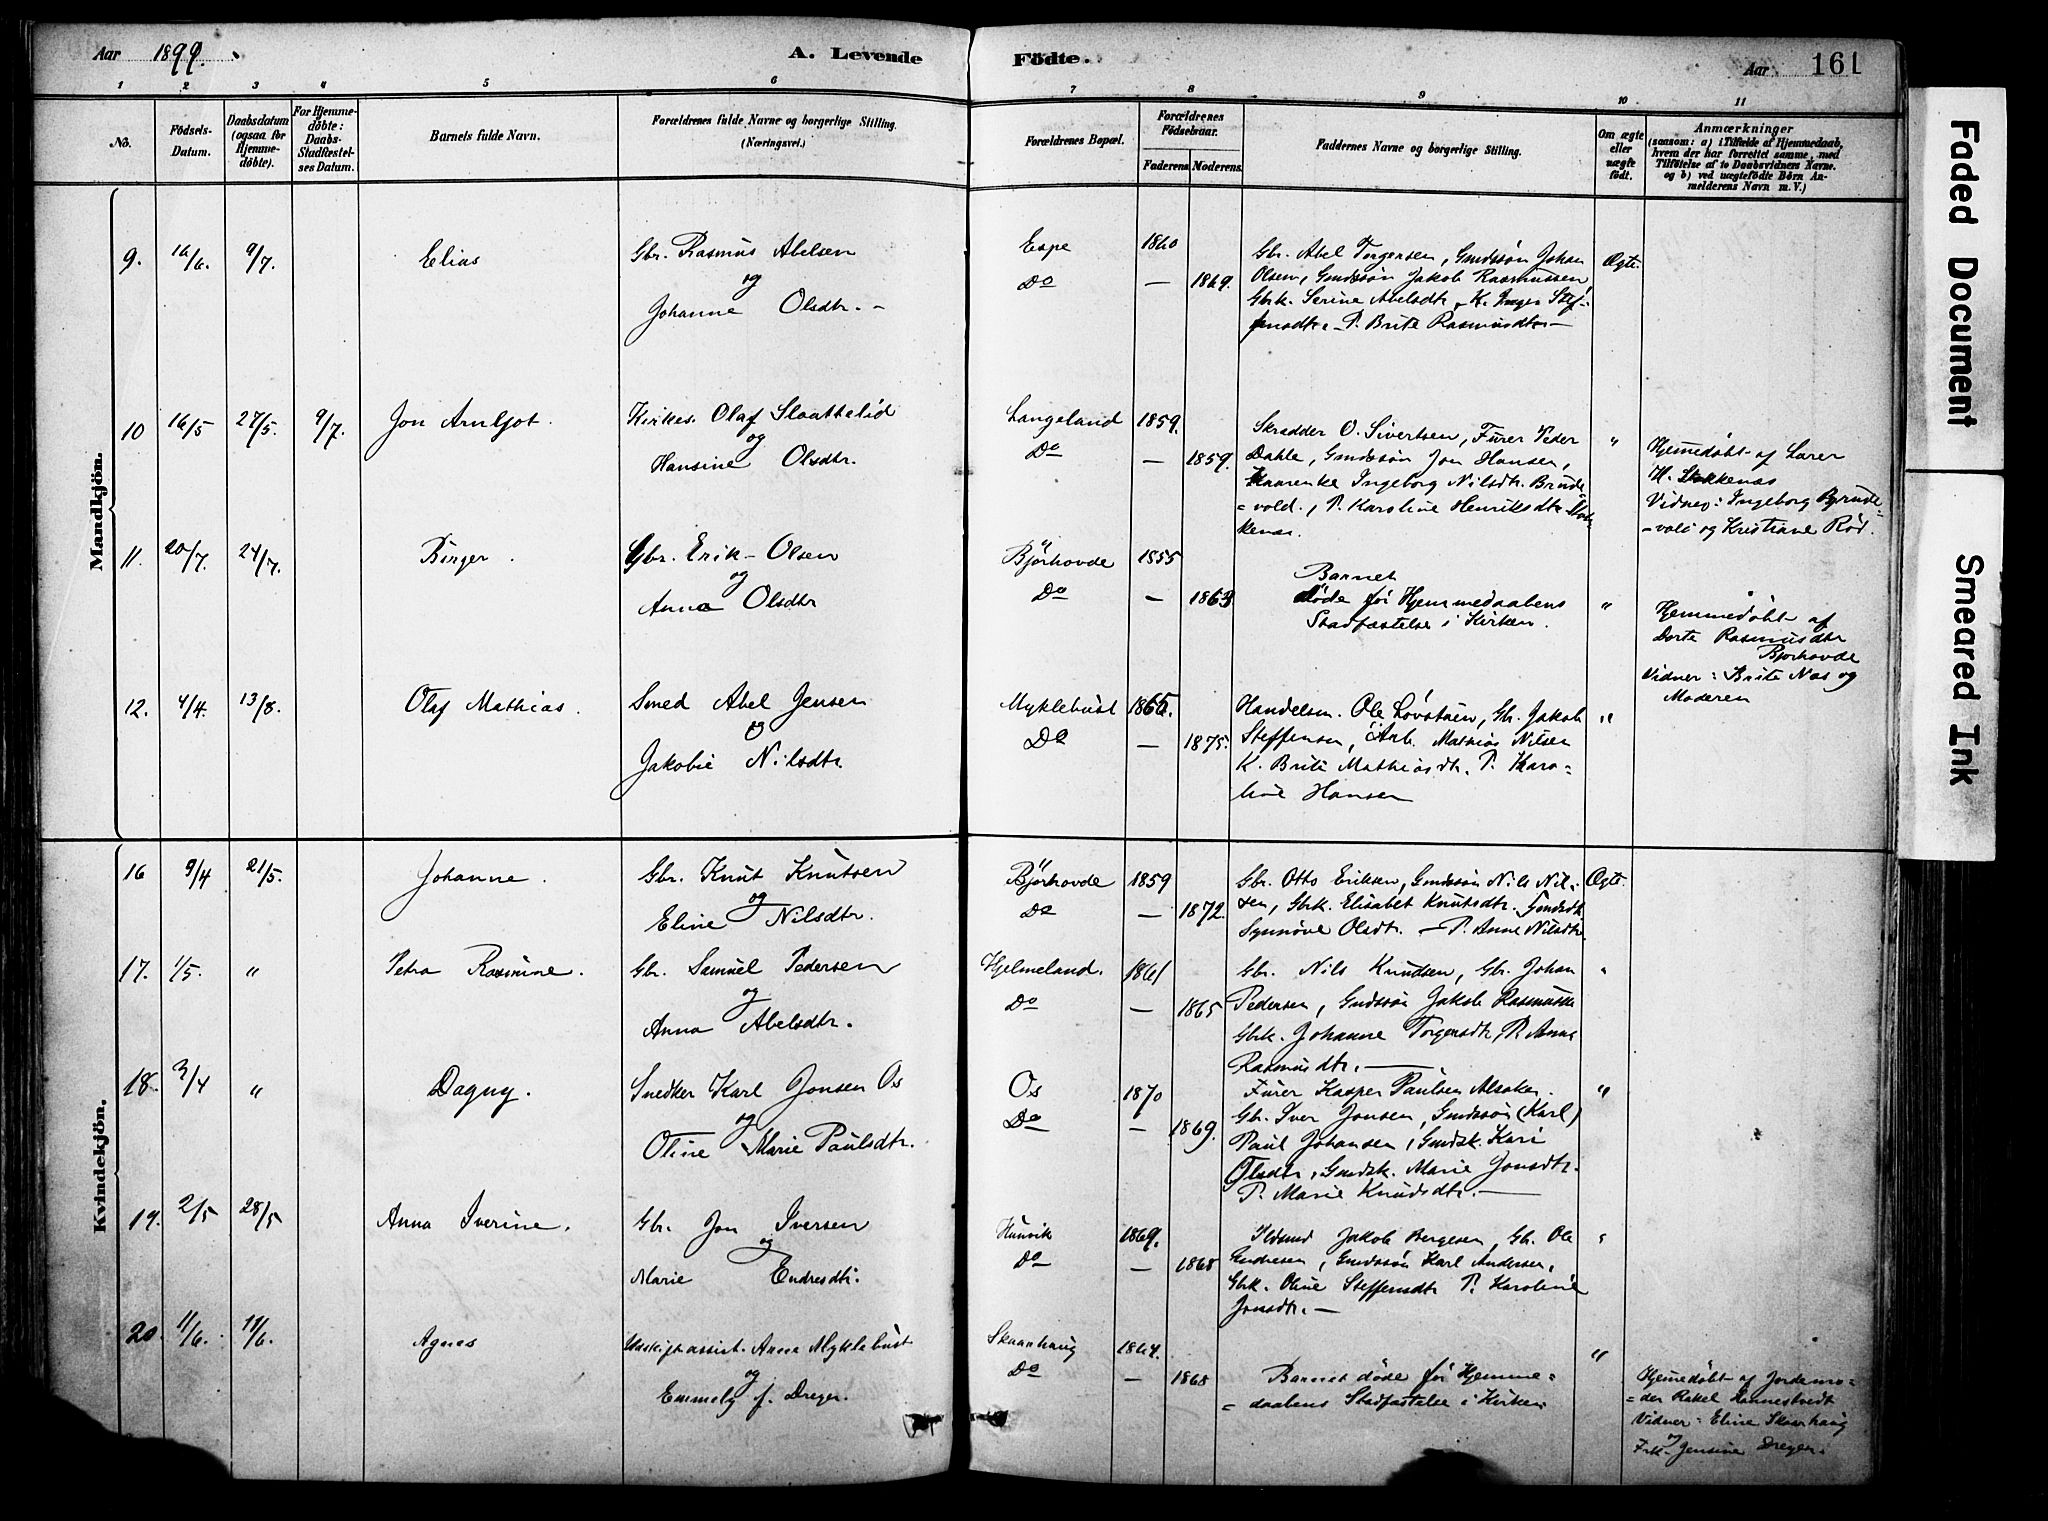 Aar 1899.
A. Levende Födte.
Aar 161
1 2 3 4 5 6 7 8 9 10 11
No.
Födsels-Datum.
Daabsdatum (ogsaa for Hjemme-döbte).
For Hjemme-döbte: Daabs-Stadfæstel-ses Datum.
Barnets fulde Navn.
Forældrenes fulde Navne og borgerlige Stilling (Næringsvei.)
Forældrenes Bopæl.
Forældrenes Födselsaar.
Faderens. Moderens.
Faddernes Navne og borgerlige Stilling.
Om ægte eller uægte födt.
Anmærkninger
(saasom: a) i Tilfælde af Hjemmedaab,
hvem der har forrettet samme, med
Tilföielse af to Daabsvidners Navne.
og b) ved uægtefödte Börn An-
melderens Navn m. V.)
Mandkjön.
9. 16/6. 9/7. Elias
Gbr. Rasmus Abelsen
og
Johanne Olsdtr. -
Espe 1860
Do — 1869.
Gbr. Abel Torgersen, Gmdssøn Johan
Olsen, Gmdssøn Jakob Rasmussen,
Gbrk. Serine Abelsdtr, K. Inger Stef-
fensdtr. P. Brite Rasmusdtr —
Ægte.
10 16/5 27/5. 9/7. Jon Arnljot.
Kirkes. Olaf Slaattelid
og
Hansine Olsdtr.
Langeland 1859.
Do — 1859.
Skrædder O. Sivertsen, Furer Peder
Dahle, Gmdssøn Jon Hansen,
Ingeborg Nilsdtr. Brude-
=vold., P. Karoline Henriksdtr
kenæs.
"
Hjemedøbt af Lærer
H. Stokkenæs
Vidner: Ingeborg Brude-
-vold og Kristiane Rød.
11. 20/7. 24/7. Birger.
Gbr. Erik Olsen
og
Anna Olsdtr
Bjørhovde 1855
Do — 1863
Barnet
døde før Hjemmedaabens
Stadfæstelse i Kirken.
"
Hjemmedøbt af
Dorte Rasmusdtr
Bjørhovde
Vidner: Brite Næs og
Moderen
12. 4/4. 13/8. Olaf Mathias.
Smed Abel Jensen
og
Jakobie Nilsdtr
Myklebust 1865.
Do — 1875.
Handelsm. Ole Løvstuen, Gbr. Jakob
Steffensen, Arb. Mathias Nilsen
K. Brite Mathiasdtr. P. Karo-
line Hansen
"
Kvindekjön.
16 9/4 21/5. Johanne.
Gbr. Knut Knutsen
og
Eline Nilsdtr.
Bjørhovde 1859
Do — 1872.
Gbr. Otto Eriksen, Gmdssøn Nils Nil-
sen, Gbrk. Elisabet Knutsdtr. Gmdsdtr.
Synnøve Olsdtr. — P. Anne Nilsdtr.
Ægte.
17. 1/5. " Petra Rasmine.
Gbr. Samuel Pedersen
og
Anna Abelsdtr.
Hjelmeland. 1861
Do — 1865
Gbr. Nils Knudsen, Gbr. Johan
Pedersen, Gmdssøn Jakob Rasmussen
Gbrk. Johanne Torgersdtr, P. Anna
Rasmusdtr. —
"
18. 3/4 " Dagny.
Snedker Karl Jonsen Os
og
Oline Marie Paulsdtr.
Os 1870
Do — 1869.
Furer Kasper Paulsen Alsaker.
Gbr. Iver Jonsen, Gmdssøn (Karl)
Paul Johansen, Gmdsk. Kari
Olsdtr, Gmdsk. Marie Jonsdtr.
P. Marie Knudsdtr. —
"
19. 2/5 28/5 Anna Iverine.
Gbr. Jon Iversen
og
Marie Endresdtr.
1869.
Do — 1868
Jakob Bergesen, Gbr. Ole
Endresen, Gmdssøn Karl Andersen,
Gbrk. Oline Steffensdtr P. Karoline
Jonsdtr. —
"
20. 11/6. 11/6. Agnes
Udskiftassist. Myklebust
og
Emmely f. Dreyer.
Skaarhaug 1864.
Do — 1868
Barnet døde før Hjemme-
=daabens Stadfæstelse i Kirken.
"
Hjemedøbt af Jordemo-
=der Rakel Hannestvedt
Vidner: Eline Skaarhaug
og
Frk. Jensine Dreyer.
Faded Document
Smeared Ink